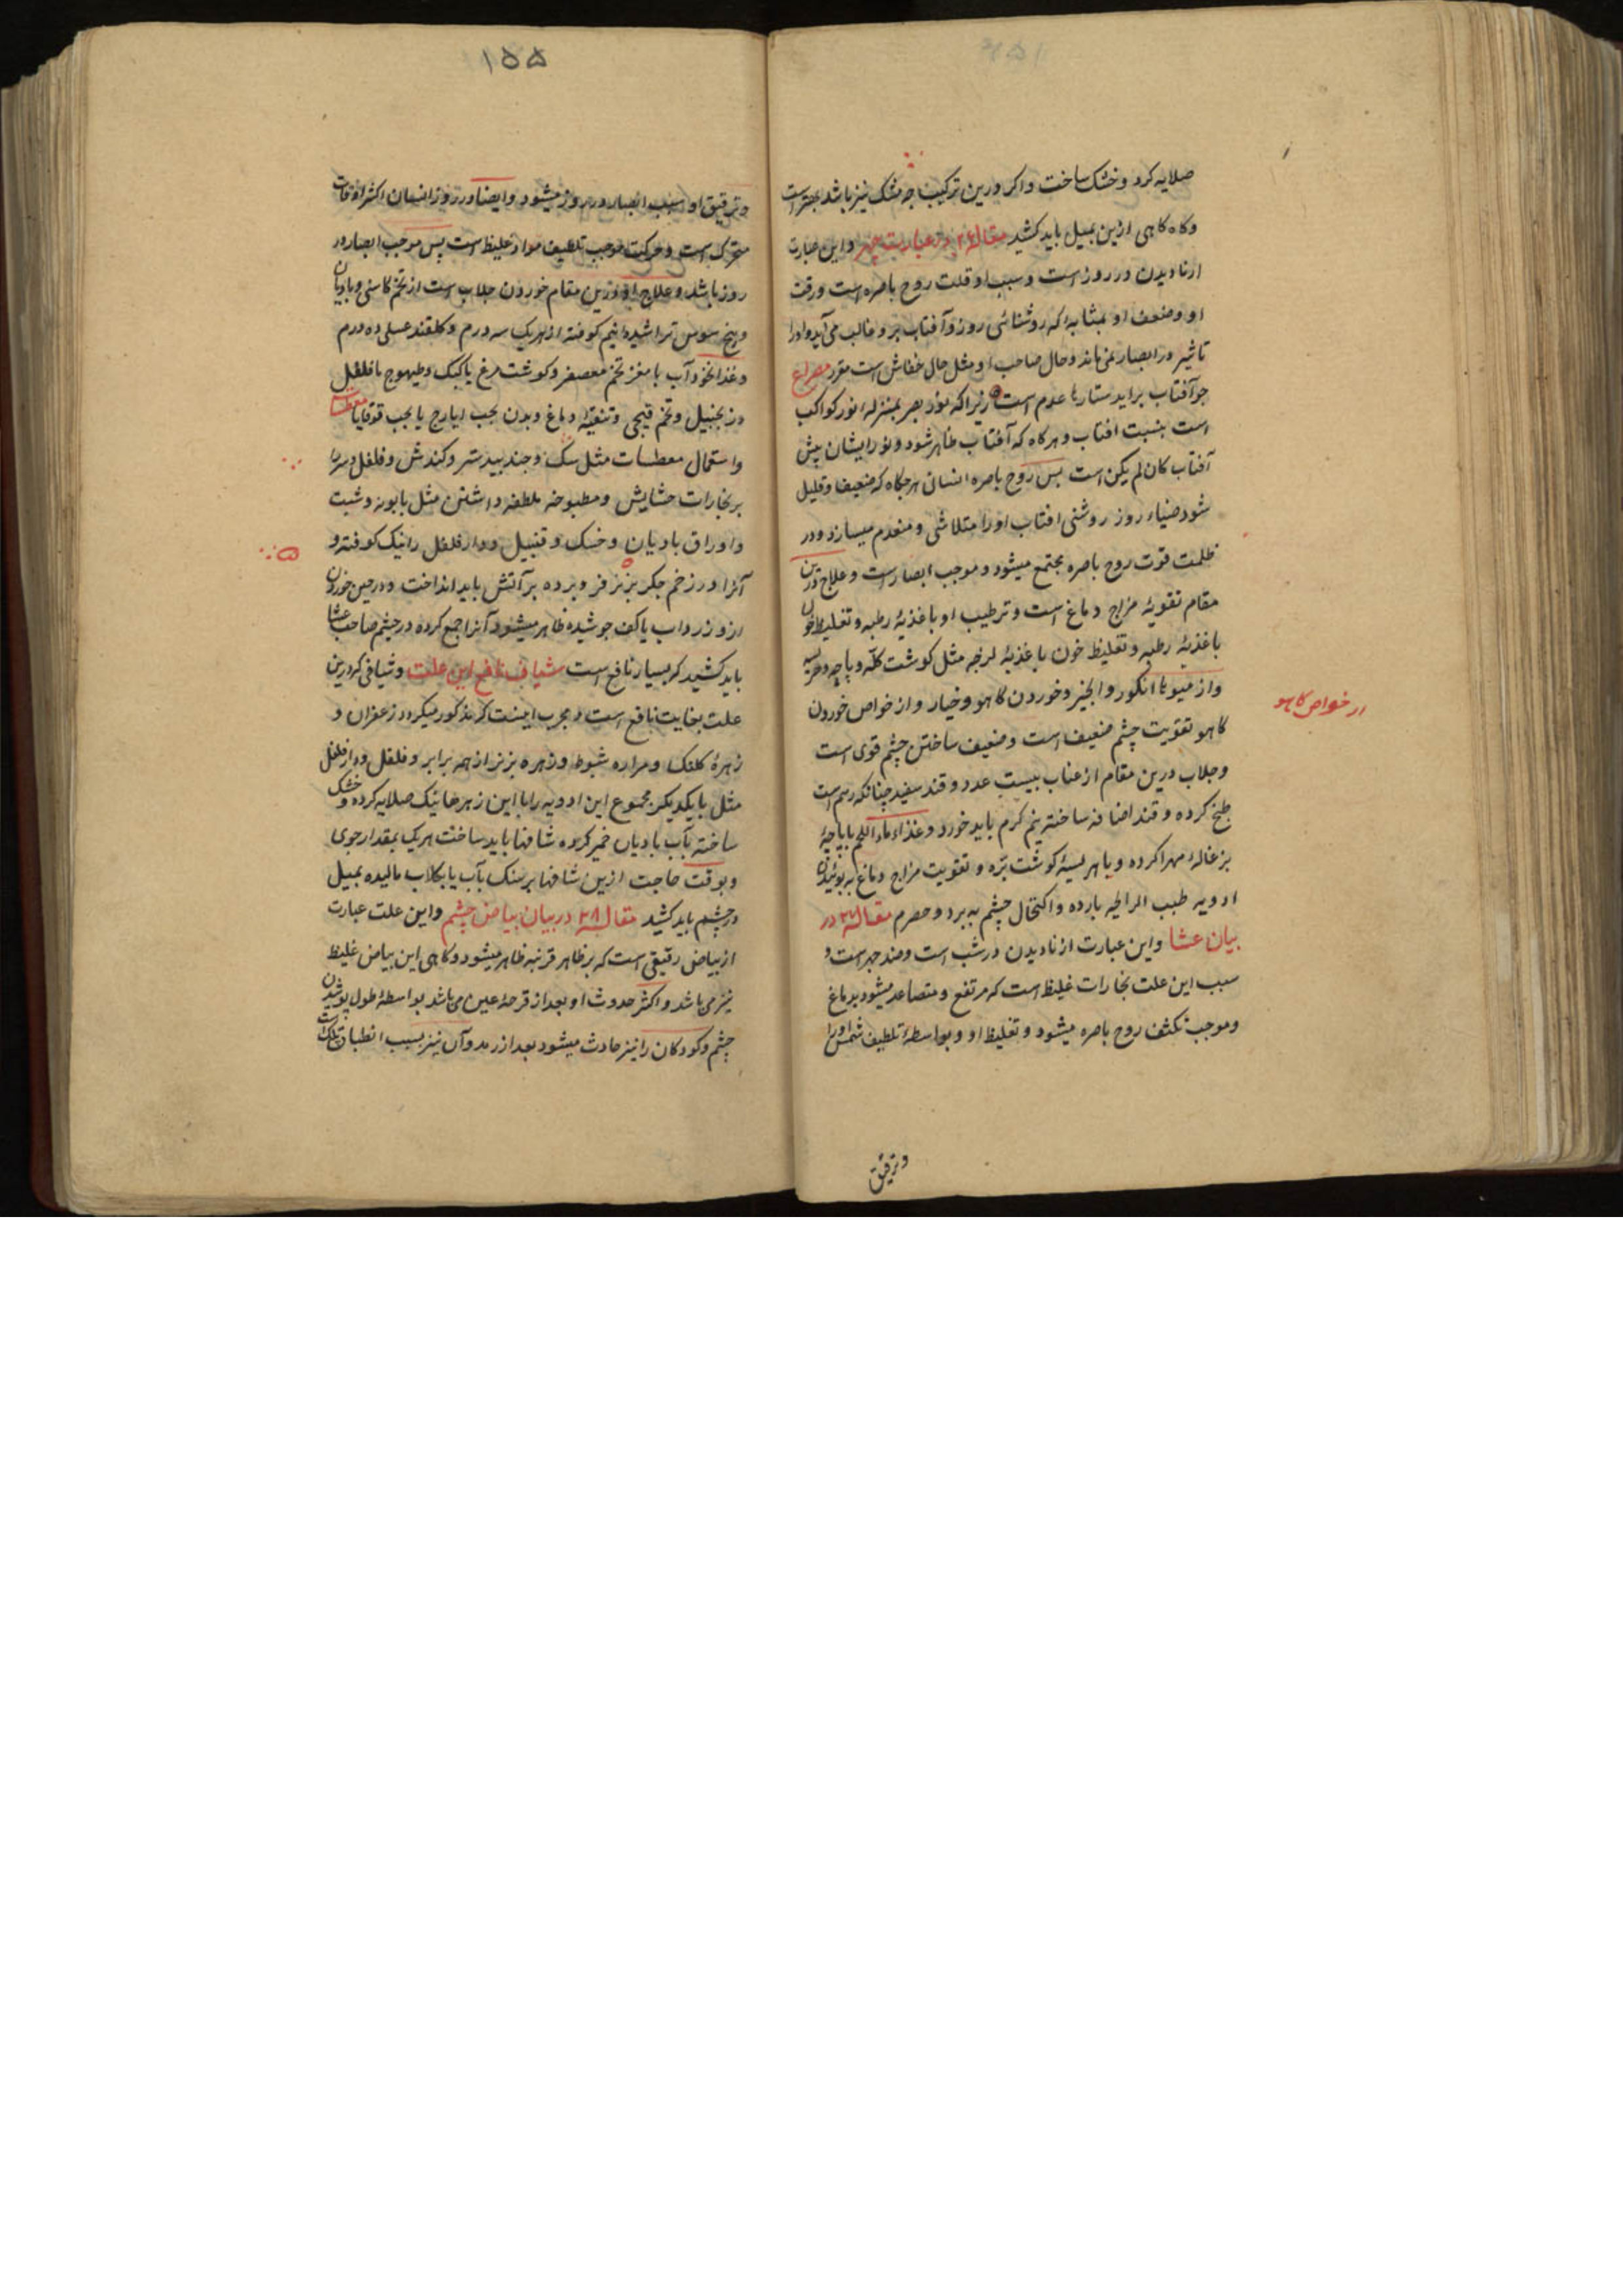 صلایه کرد و خشک ساخت و اکر درین ترکیب جه مشک نیز باشد بهتر است
و کاه کاهی ازین بمیل باید کشید مقاله ۲۶ در عبارت جهر و این عبارت
از نادیدن در روز است و سبب او قلت روح باصره است و رقت
او و ضعف او بمثابه که روشنائی روز و آفتاب برو غالب می آید و او را
تاثیر در ابصار نمی ماند و حال صاحب او مثل حال خفاش است مقرر مصراع
جو آفتاب براید ستارها عدم است زیرا که نور بصر بمنزله نور کواکب
است بنسبت افتاب و هرکاه که آفتاب ظاهر شود و نور ایشان پیش
آفتاب کان لم یکن است پس روح باصره انسان هرجکاه که ضعیف و قلیل
شود ضیاء روز روشنی افتاب او را متلاشی و منعدم میسازد و در
ظلمت قوت روح باصره مجتمع میشود و موجب ابصار است و علاج درین
مقام تقویۀ مزاج دماغ است و ترطیب او باغذیۀ رطبه و تغلیظ خون
باغذیۀ رطبه و تغلیظ خون باغذیۀ لزجه مثل کوشت کلّه و پاچه و هریسه
و از میوها انکور و انجیر و خوردن کاهو و خیار و از خواص خوردن
کاهو تقویت چشم ضعیف است و ضعیف ساختن چشم قوی است
و جلاب درین مقام از عناب بیست عدد و قند سفید چنانکه رسم است
طبخ کرده و قند اضافه ساخته نیم کرم باید خورد و غذاء ماء اللحم با پاچۀ
بزغاله مهرا کرده و یا هریسۀ کوشت برّه و تقویت مزاج دماغ به بوئیدن
ادویه طیب الرایحه بارده و اکتحال چشم به برد و حصرم مقاله ۲۷ در
بیان عشا و این عبارت از نادیدن در شب است و ضد جهر است و
سبب این علت بخارات غلیظ است که مرتفع و متصاعد میشود بدماغ
و موجب تکثف روح باصره میشود و تغلیظ او و بواسطۀ تلطیف شمس او را
از خواص کاهو
و ترقیق
۱۵۵
و ترقیق او سبب ابصار در روز میشود و ایضا در روز انسان اکثر اوقات
متحرک است و حرکت موجب تلطیف مواد غلیظ است پس موجب ابصار در
روز باشد و علاج او درین مقام خوردن جلاب است از تخم کاسنی و بادیان
و بیخ سوس تراشیده نیم کوفته از هریک سه درم و کلقند عسلی ده درم
و غذا نخود آب با مغز تخم معصفر و کوشت مرغ یا کبک و طیهوج با فلفل
و زنجبیل و تخم قیجی و تنقیۀ دماغ و بدن بحب ایارج یا بحب قوقایا معطسات
و استعمال معطسات مثل مسک و جند بیدستر و کندش و فلفل و سر را
بر بخارات حشایش و مطبوخه ملطفه داشتن مثل بابونه و شبت
و اوراق بادیان و خسک و قنبیل و دار فلفل را نیک کوفته و
آنرا در زخم جکر بز نر فرو برده بر آتش باید انداخت و در حین خوردن
ازو زرد اب یا کف جوشیده ظاهر میشود آنرا جمع کرده در چشم صاحب عشا
باید کشید که بسیار نافع است شیاف نافع این علت و شیافی که درین
علت بغایت نافع است و مجرب اینست که مذکور میکردد زعفران و
زهرۀ کلنک و مراره شبوط و زهره بز نر از همه برابر و فلفل و دار فلفل
مثل بایکدیکر مجموع این ادویه را با این زهرها نیک صلایه کرده و خشک
ساخته بآب بادیان خمیر کرده شافها باید ساخت هریک بمقدار جوی
و بوقت حاجت ازین شافها بر سنک بآب یا بکلاب مالیده بمیل
در چشم باید کشید مقاله ۲۸ در بیان بیاض چشم و این علت عبارت
از بیاض رقیقی است که بر ظاهر قرنیه ظاهر میشود و کاهی این بیاض غلیظ
نیز می باشد و اکثر حدوث او بعد از قرحۀ عین می باشد بواسطۀ طول پوشیدن
چشم و کودکان را نیز حادث میشود بعد از رمد و آن نیز بسبب انطباق